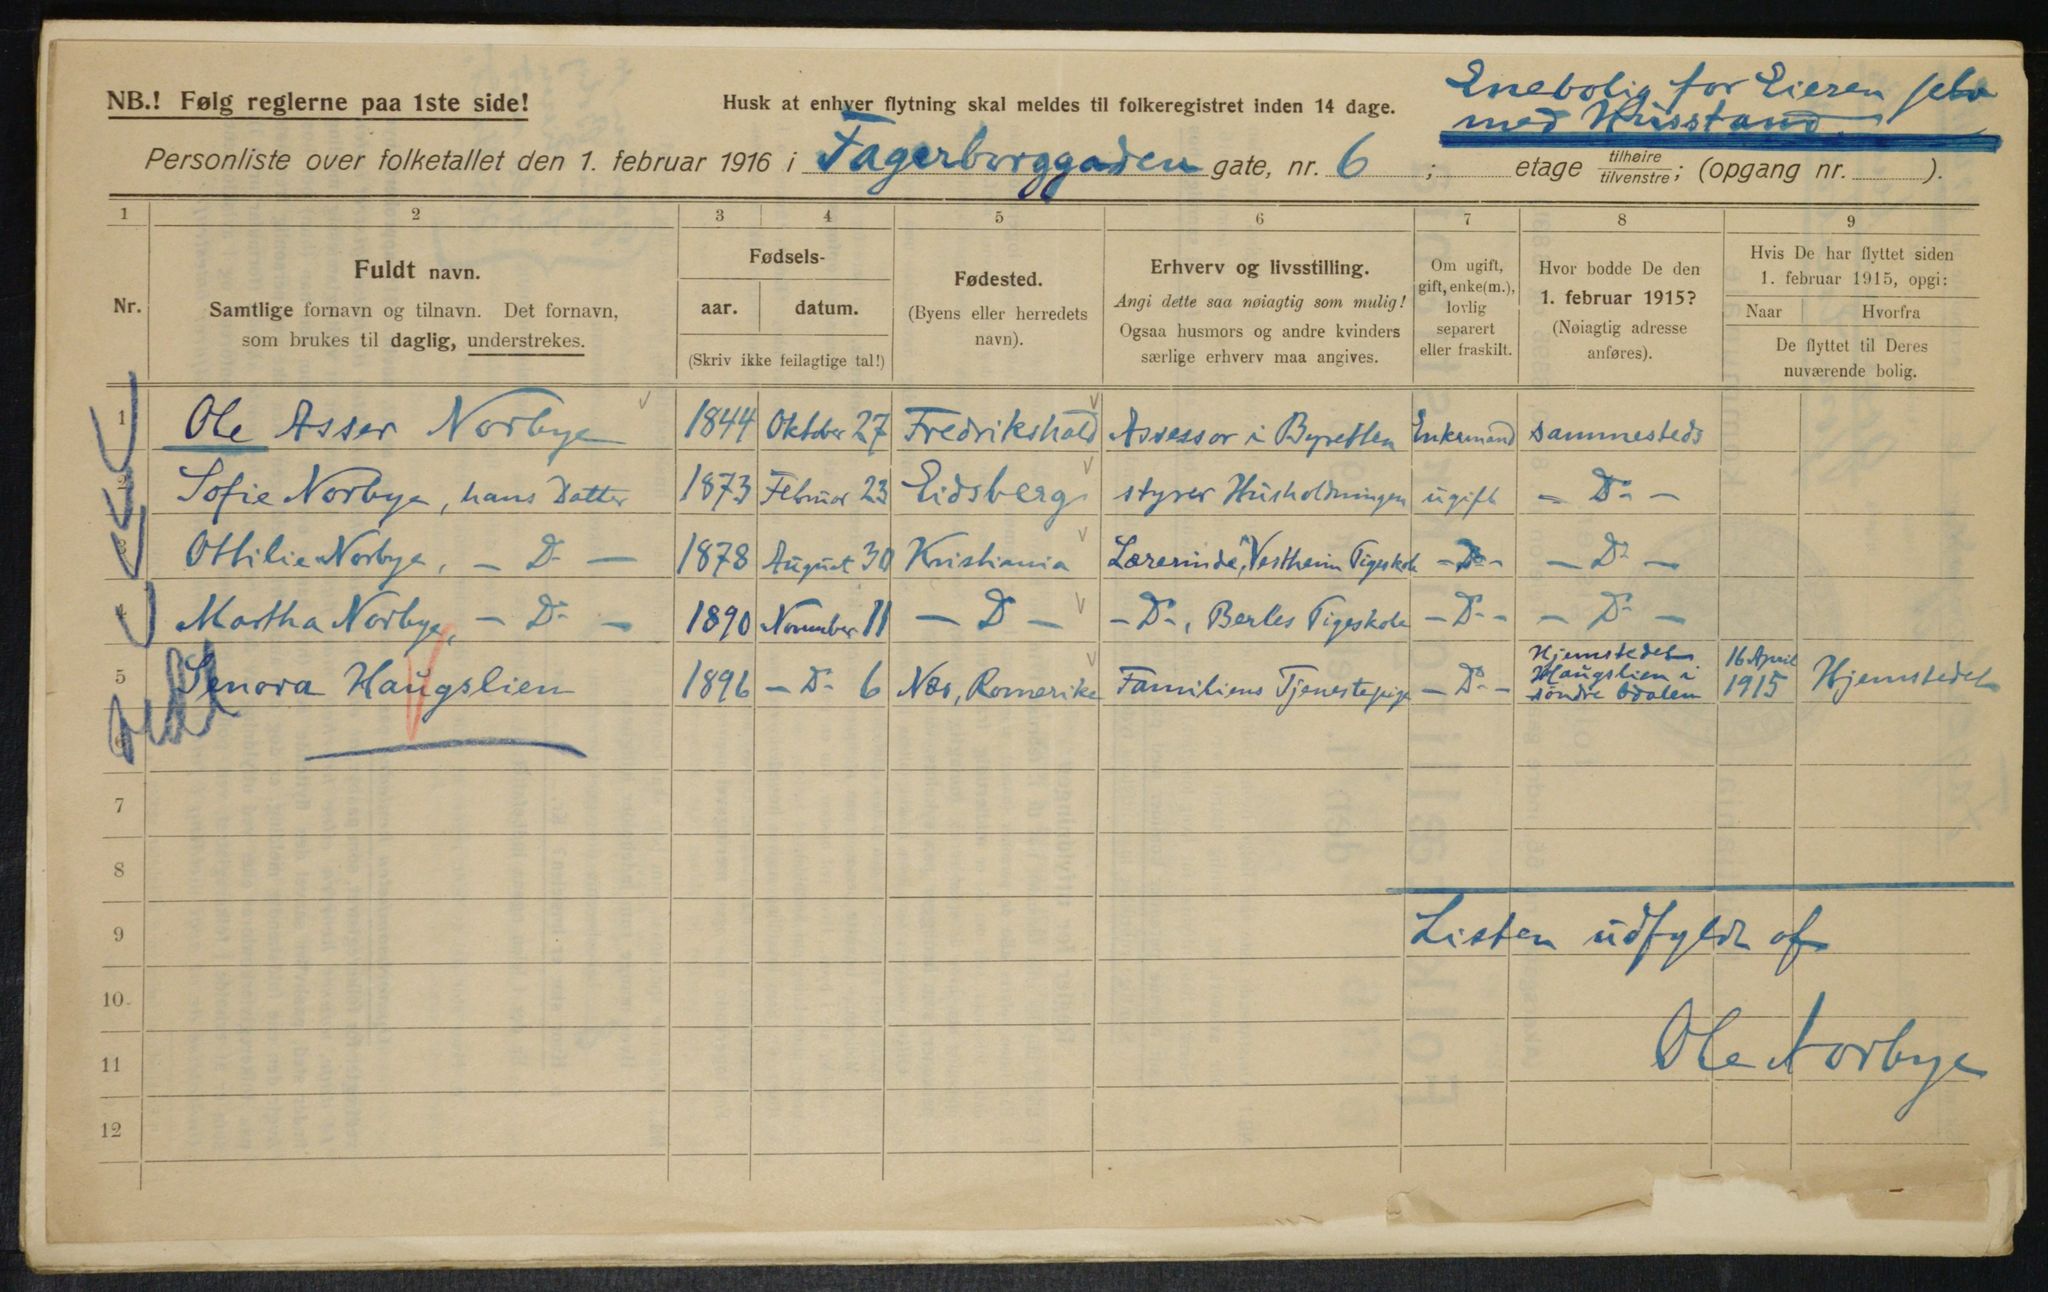 NB.! Følg reglerne paa 1ste side!
Husk at enhver flytning skal meldes til folkeregistret inden 14 dage.
Enebolig for Eieren selv
med Husstand.
Personliste over folketallet den 1. februar 1916 i Fagerborggaden gate, nr. 6 ; etage tilhøire tilvenstre; (opgang nr. ).
1 2 3 4 5 6 7 8 9
Nr.
Fuldt navn.
Samtlige fornavn og tilnavn. Det fornavn,
som brukes til daglig, understrekes.
Fødsels-
aar. datum.
(Skriv ikke feilagtige tal!)
Fødested.
(Byens eller herredets
navn).
Erhverv og livsstilling.
Angi dette saa nøiagtig som mulig!
Ogsaa husmors og andre kvinders
særlige erhverv maa angives.
Om ugift,
gift, enke(m.),
lovlig
separert
eller fraskilt.
Hvor bodde De den
1. februar 1915?
(Nøiagtig adresse
anføres).
Hvis De har flyttet siden
1. februar 1915, opgi:
Naar Hvorfra
De flyttet til Deres
nuværende bolig.
1 Ole Asser Norbye 1844 Oktober 27 Fredrikshald Assessor i Byretten Enkemand sammesteds
2 Sofie Norbye, hans Datter 1873 Februar 23 Eidsberg styrer Husholdningen ugift – Do –
3 Ottilie Norbye, – Do – 1878 August 30 Kristiania Lærerinde, Vestheim Pigeskole – Do – – Do –
4 Martha Norbye, – Do – 1890 November 11 – Do – – Do –, Berles Pigeskole – Do – – Do –
5 Senora Haugslien 1896 – Do – 6 Næs, Romerike Familiens Tjenestepige – Do – Hjemstedet Haugslien i søndre Odalen 16 April 1915 Hjemstedet
6
7
8
9
Listen udfyldt af
10
Ole Norbye
11
12